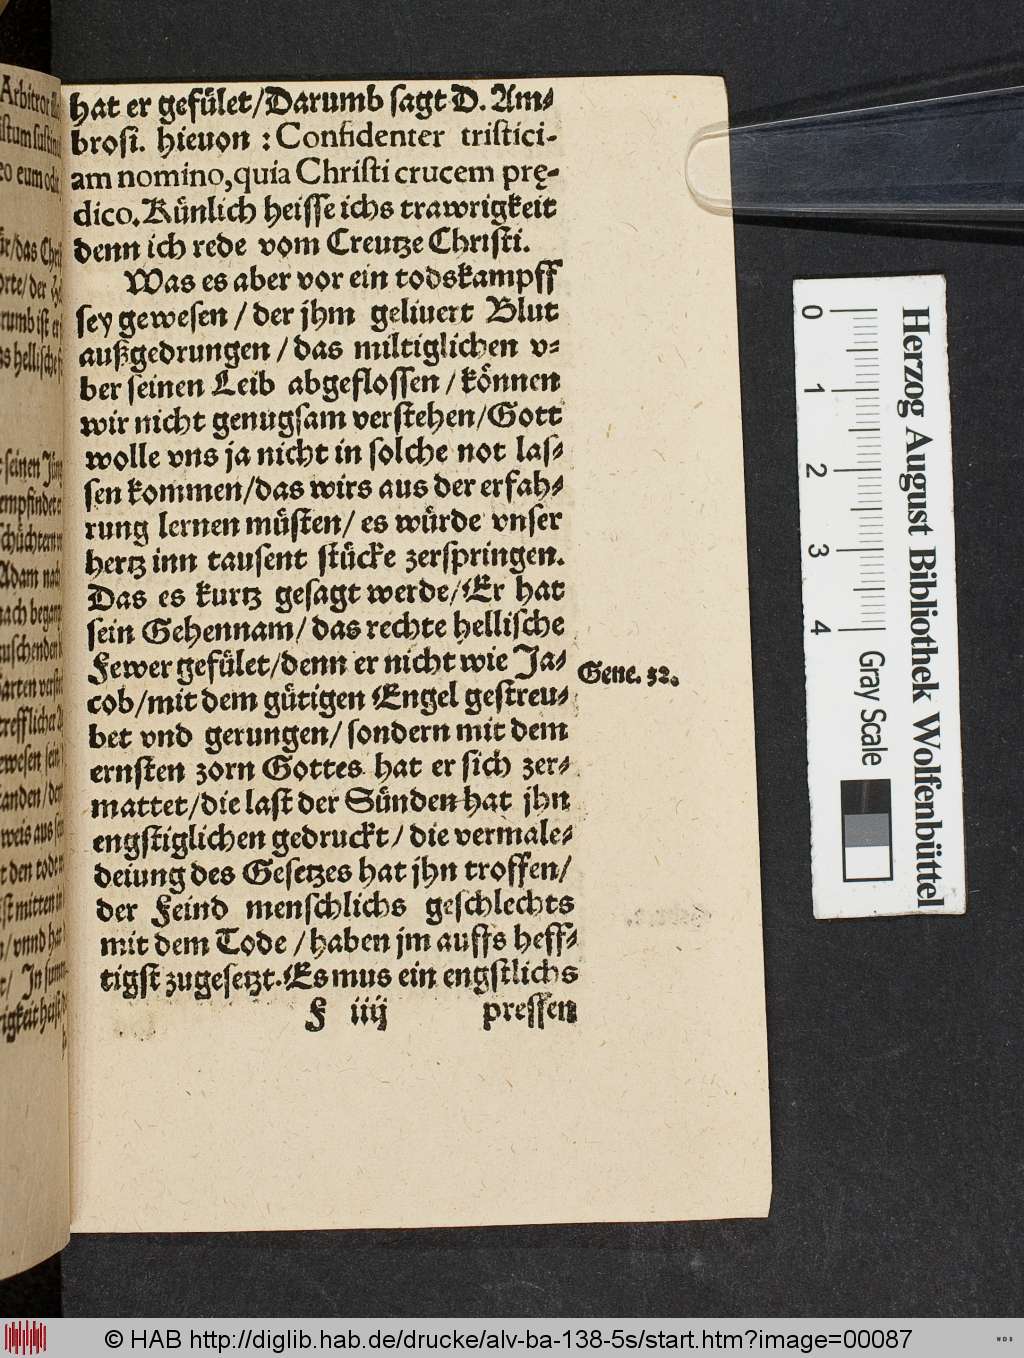 hat er gefület/Darumb sagt D. Am⸗
brosi. hieuon : Confidenter tristici-
am nomino, quia Christi crucem prę-
dico. Künlich heisse ichs trawrigkeit
denn ich rede vom Creutze Christi.
Was es aber vor ein todskampff
sey gewesen / der jhm geliuert Blut
außgedrungen / das miltiglichen v⸗
ber seinen Leib abgeflossen / können
wir nicht genugsam verstehen/Gott
wolle vns ja nicht in solche not las⸗
sen kommen/das wirs aus der erfah⸗
rung lernen müsten/ es würde vnser
hertz inn tausent stücke zerspringen.
Das es kurtz gesagt werde/Er hat
sein Gehennam/ das rechte hellische
Fewer gefület/denn er nicht wie Ja⸗
cob/mit dem gütigen Engel gestreu⸗
bet vnd gerungen/ sondern mit dem
ernsten zorn Gottes hat er sich zer⸗
mattet/die last der Sünden hat jhn
engstiglichen gedruckt/ die vermale⸗
deiung des Gesetzes hat jhn troffen/
der Feind menschlichs geschlechts
mit dem Tode / haben jm auffs heff⸗
tigst zugesetzt. Es mus ein engstlichs
F iiij pressen
Gene. 32.
Herzog August Bibliothek Wolfenbüttel
0 1 2 3 4 Gray Scale
© HAB http://diglib.hab.de/drucke/alv-ba-138-5s/start.htm?image=00087